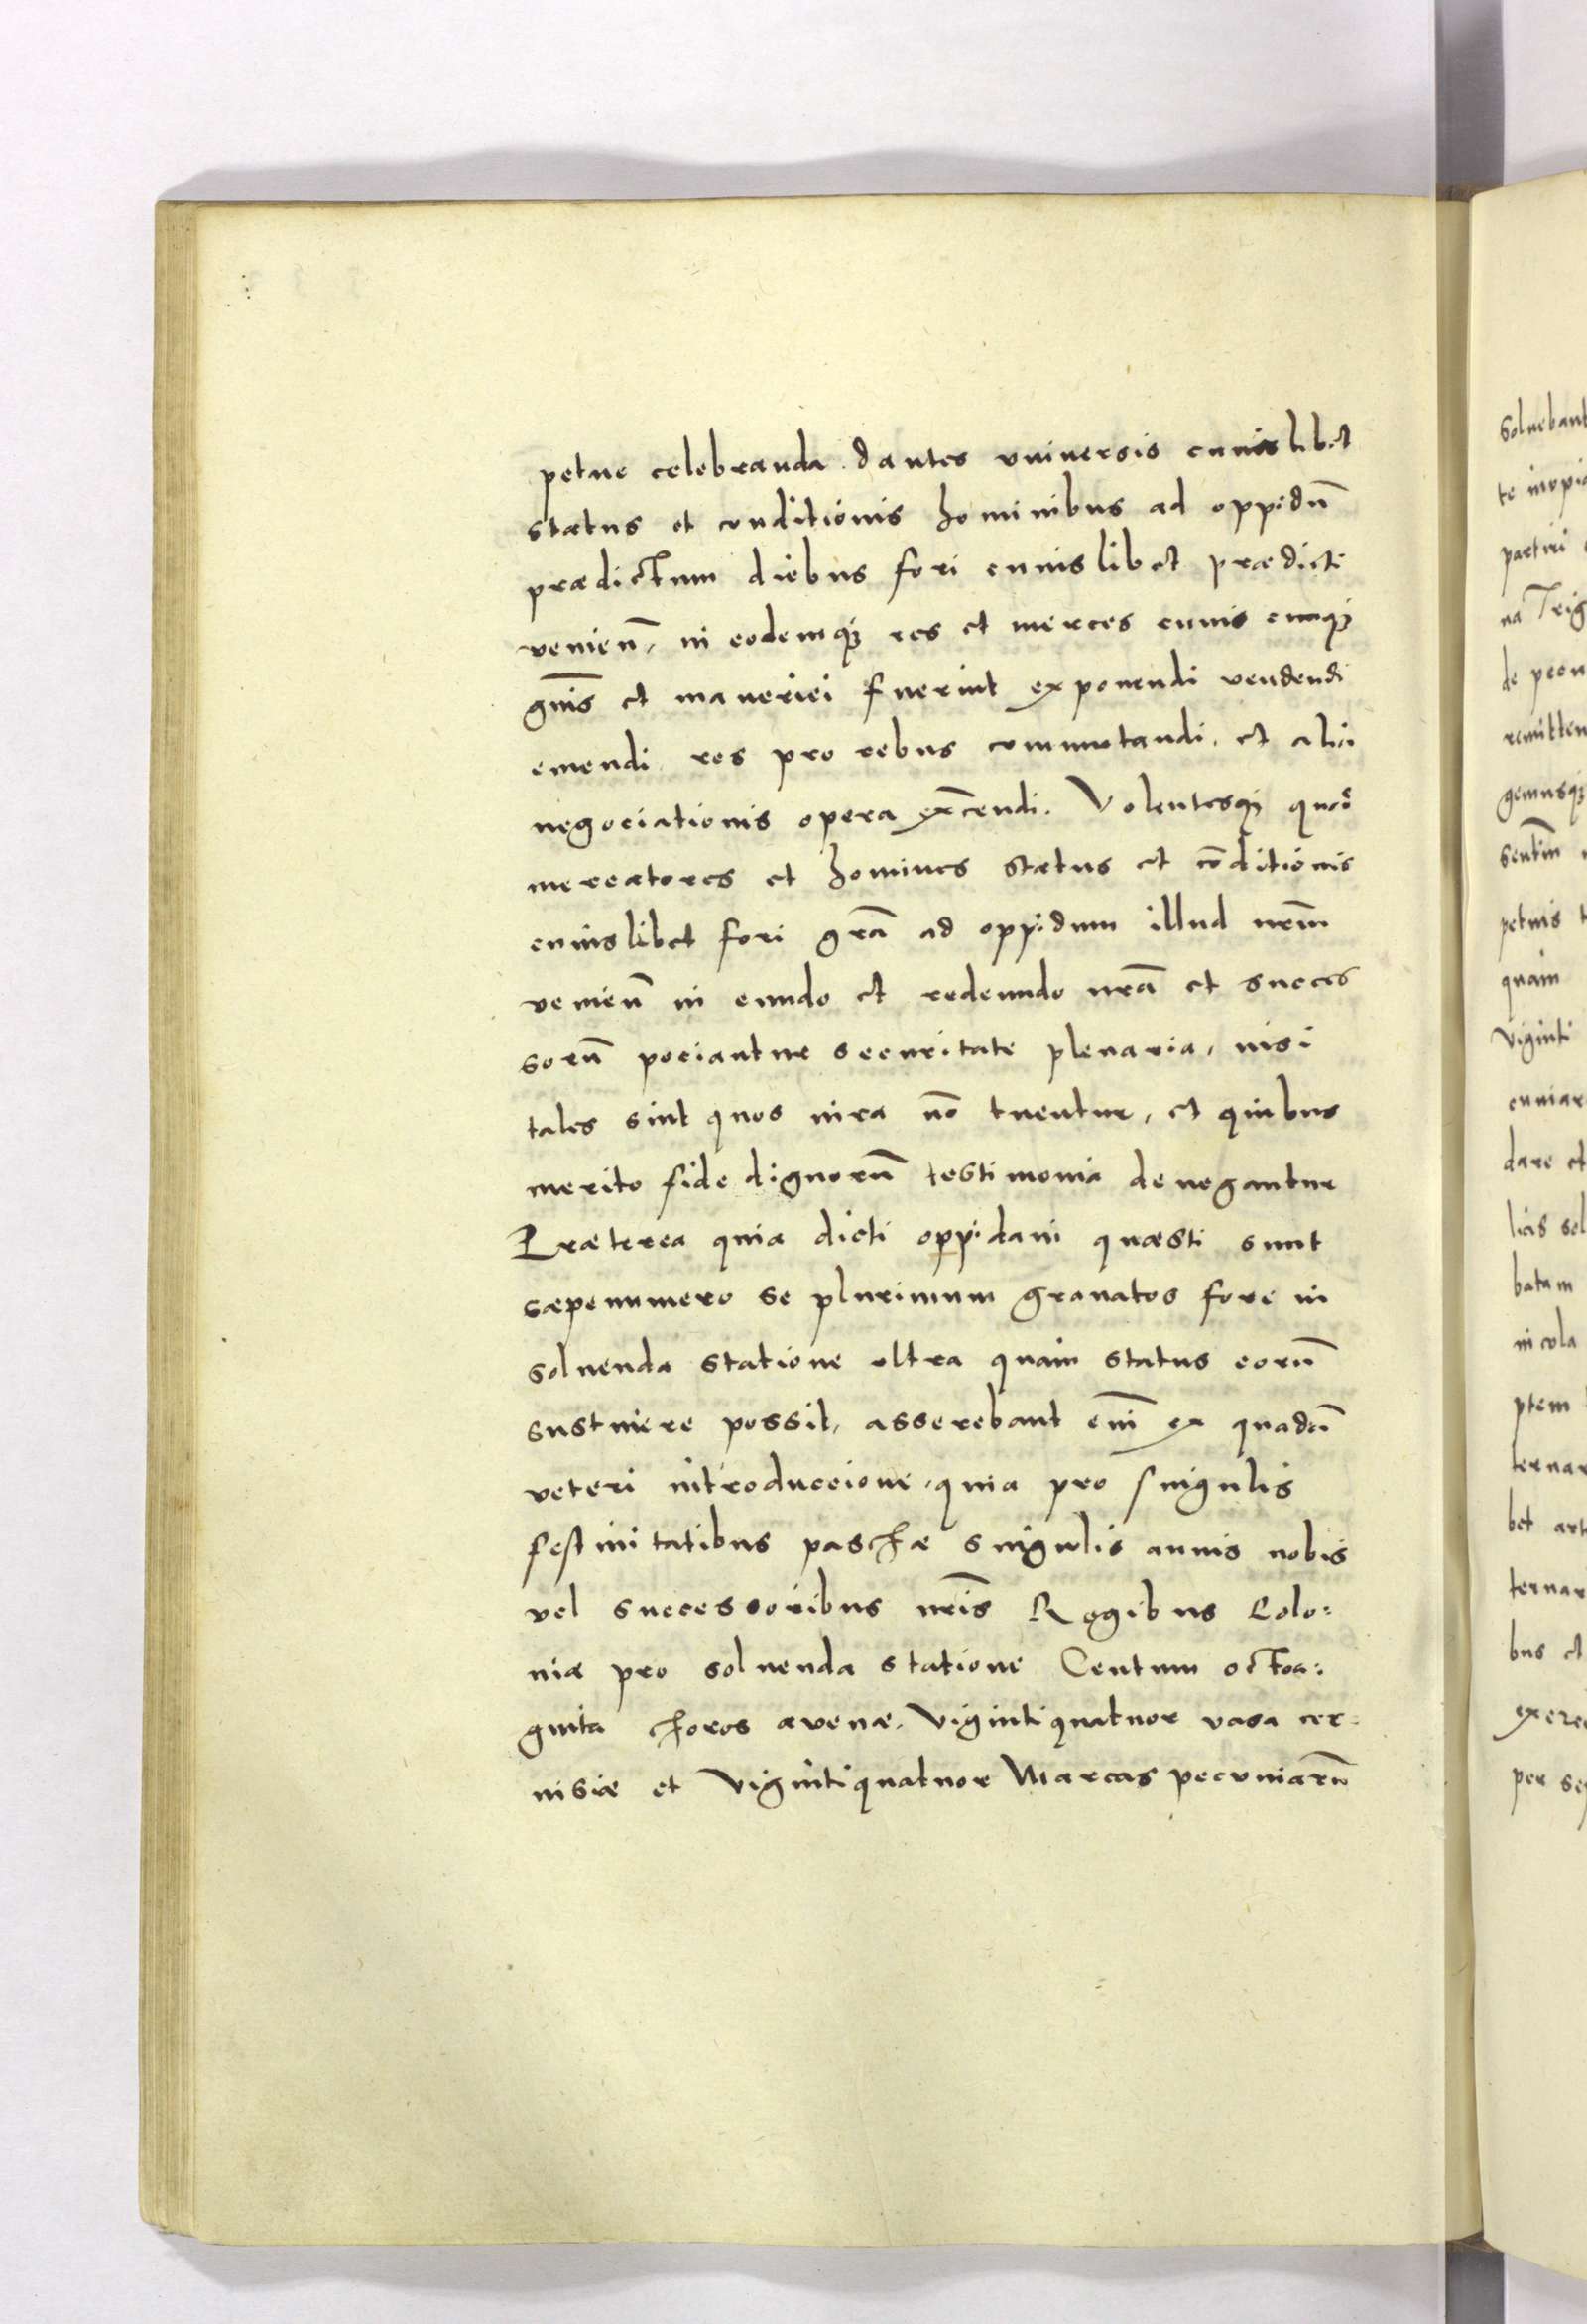 petue celebranda dantes vniversis cuiuslibet
status et conditionis hominibus ad oppidū
prædictum diebus fori cuiuslibet prædicti
venieñ, in eodemq; res et merces cuius cumq;
gñis et maneriei fuerint exponendi vendendi
emendi res pro rebus commutandi, et alia
negociationis opera exc̄endi. Volentesq; quod
mercatores et homines status et cōditionis
cuiuslibet fori grā ad oppidum illud nrm̄
venieñ in eundo et redeundo nrā et succes
sorū pociantur securitate plenaria, nisi
tales sint quos iura nō tuentur, et quibus
merito fide dignorū testimonia denegantur
Præterea quia dicti oppidani quæsti sunt
sæpenumero se plurimum grauatos fore in
soluenda statione vltra quam status eorū
sustinere possit, asserebant em̄ ex quadā
veteri introduccione, quia pro singulis
festiuitatibus paschæ singulis annis nobis
vel successoribus nrīs Regibus Polo:
niæ pro soluenda statione Centum octoa:
ginta choros avenæ, Vigintiquatuor vasa cer:
uisiæ et Vigintiquatuor Marcas pecuniarū
soluebant
te inopia
partiri
na Trig
de pecu
remitten
gimusq;
sentm̄
petuis
quam
Viginti
cuniar
dare et
liis sol
batum
in cola
ptem
ternar
bet art
ternar
bus et
exerci
per se